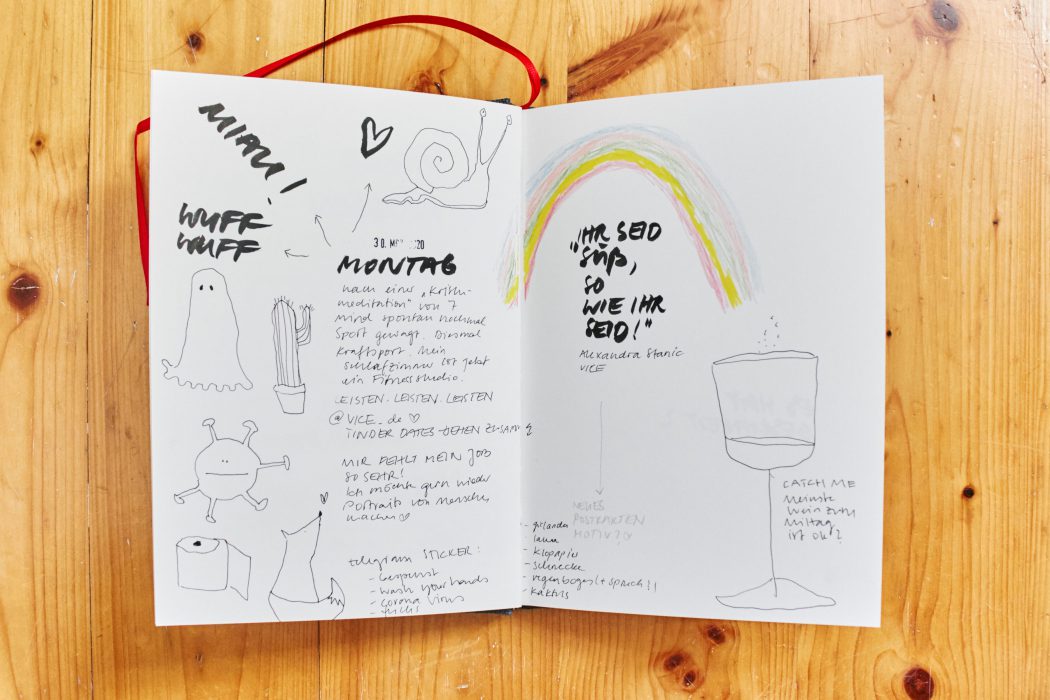 MIAU!
WUFF
WUFF
30. 2020
MONTAG
nach einer „
meditation" von 7
Mind spontan nochmal
Sport gewagt. Diesmal
Kraftsport. Mein
Schlafzimmer ist jetzt
ein Fitnessstudio.
LEISTEN. LEISTEN. LEISTEN
@VICE_de ♡
TINDER DATES
MIR FEHLT MEIN JOB
SO SEHR!
Ich möchte gern wieder
Portraits von Menschen
machen ♡
telegram STICKER:
- gespenst
- wash your hands
- corona virus
- fuchs
- klopapier
- schnecke
- regenbogen (+ spruch?)
- kaktus
„IHR SEID
SÜß,
SO
WIE IHR
SEID!"
Alexandra Stanic
VICE
NEUES
POSTKARTEN
MOTIV?
CATCH ME
Wein zum
Mittag
ist ok?